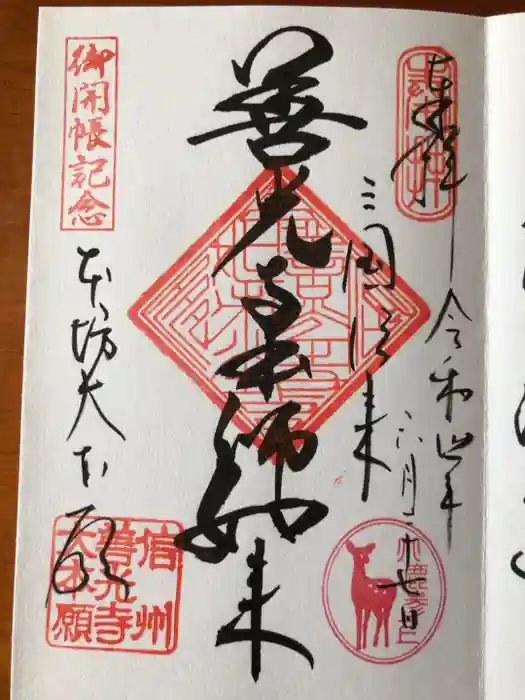 奉拝
令和四年
六月二十七日
三国伝来
善光寺本師如来
御開帳記念
本坊大本願
信州
善光寺
大本願